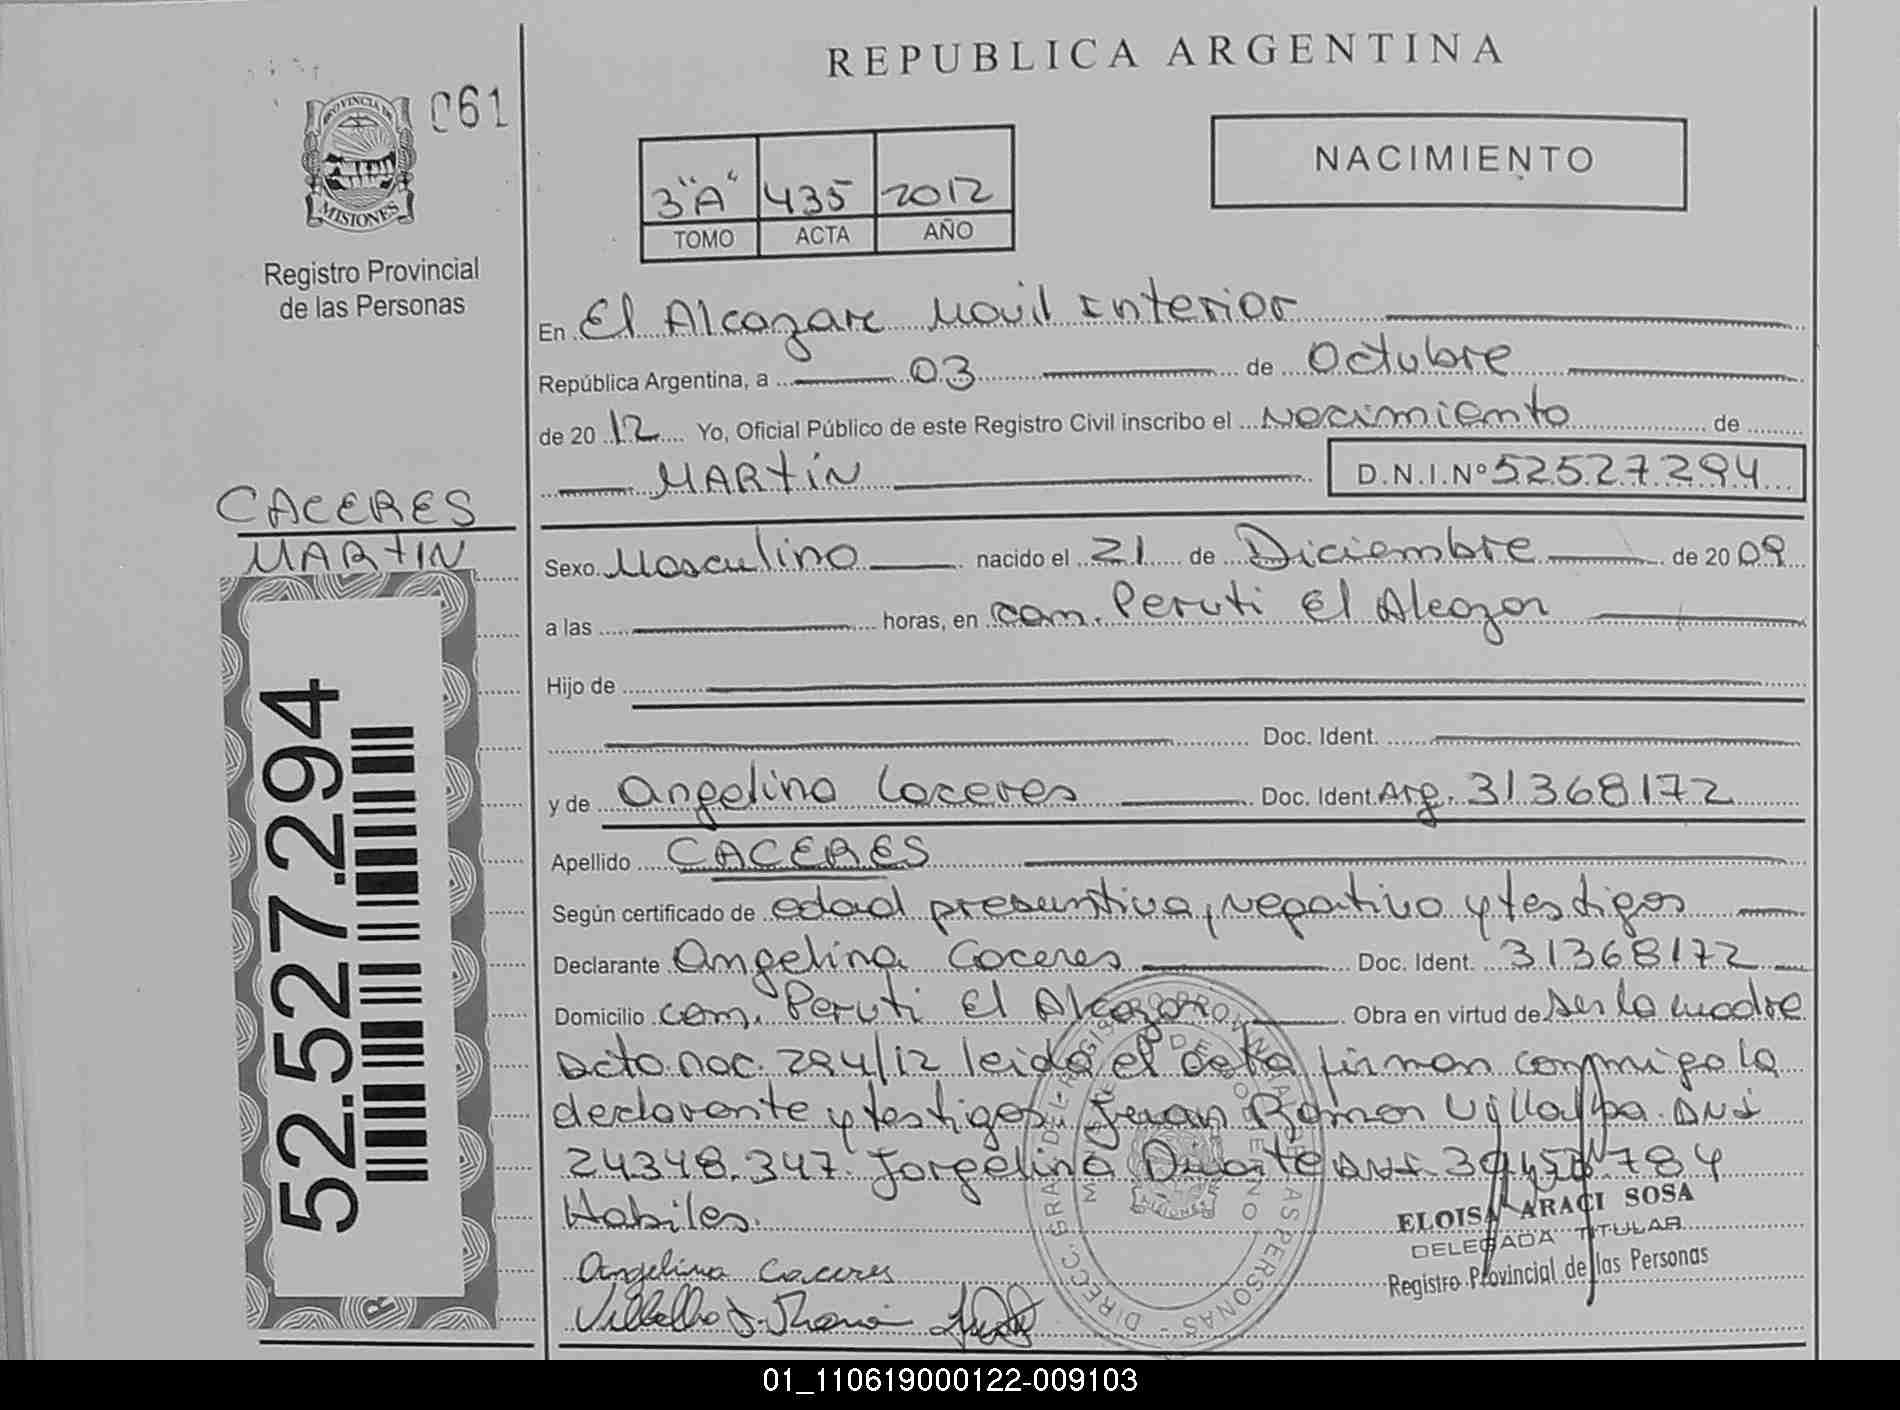 REPUBLICA ARGENTINA
061
PROVINCIA DE
MISIONES
Registro Provincial
de las Personas
3"A" 435 2012
TOMO ACTA AÑO
NACIMIENTO
En El Alcazar Movil Interior
República Argentina, a 03 de Octubre
de 2012 Yo, Oficial Público de este Registro Civil inscribo el Nacimiento de
MARTÍN D.N.I.Nº 52527294
CACERES
MARTIN
52.527.294
Sexo Masculino nacido el 21 de Diciembre de 2009
a las horas, en com. Peruti El Alcazar
Hijo de
Doc. Ident.
y de Angelina Caceres Doc. Ident. Arg. 31368172
Apellido CACERES
Según certificado de edad presuntiva, negativo y testigos
Declarante Angelina Caceres Doc. Ident. 31368172
Domicilio com. Peruti El Alcazar Obra en virtud de ser la madre
acta nac. 294/12 leida el acta firman conmigo la
declarante y testigos Juan Ramon Villalba DNI
24348.347. Jorgelina Duarte DNI
Habiles.
ELOISA ARACI SOSA
DELEGADA TITULAR
Registro Provincial de las Personas
Angelina Caceres
01_110619000122-009103